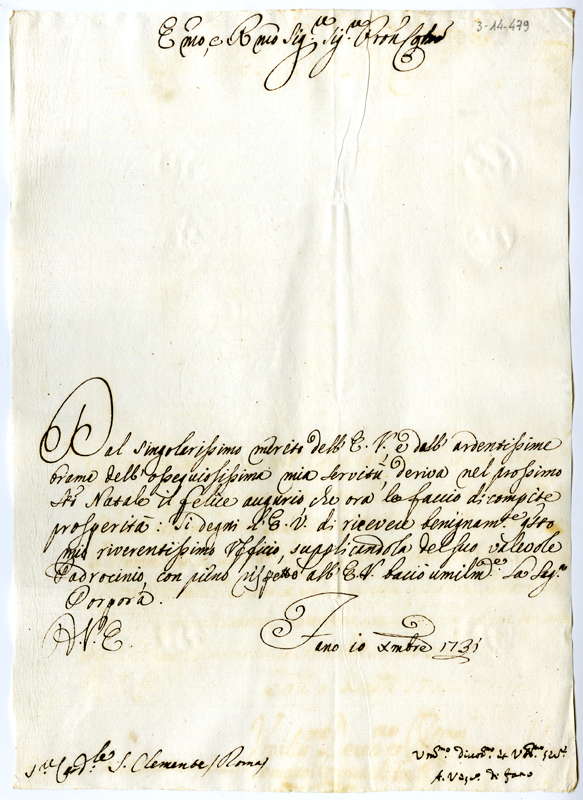 3-14-479
Emo, e Rmo Sig.re Sig.re Pron Col.mo
Dal singolarissimo merito dell' E. V.ra, e dall' ardentissime
brame dell' ossequiosissima mia servitù, deriva nel prossimo
Sto Natale il felice augurio che ora le faccio di compite
prosperità: Si degni l'E. V. di ricevere benignamte qsto
mio riverentissimo Ufficio, supplicandola del suo valevole
Padrocinio, con pieno rispetto all' E. V. bacio umilmte la Sag.ra
Porpora.
D. V. E.
Fano 10 Xmbre 1731
S.r Card.le S. Clemente (Roma)
Um.mo Divot.mo
A. Vesc.o di Fano